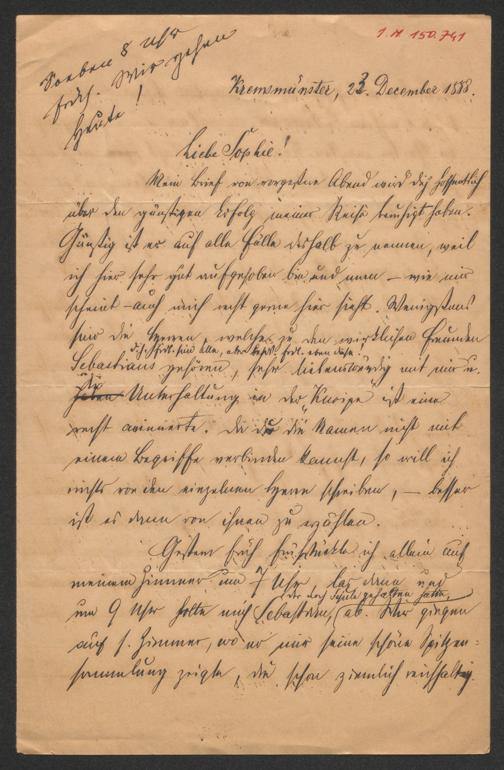 1.N 150.741
Soeben 8 Uhr
früh. Wir gehen
heute!
Kremsmünster, 23. December 1888.
Liebe Sophie!
Mein Brief von vorgestern Abend wird dich hoffentlich
über den günstigen Erfolg meiner Reise beruhigt haben.
Günstig ist er auf alle Fälle deshalb zu nennen, weil
ich hier sehr gut aufgehoben bin und man – wie mir
scheint – auch mich recht gerne hier sieht. Wenigstens
sind die Herren, welche zu den wirklichen Freunden
d. h. sind alle, aber eben diese
Sebastians gehören, sehr liebenswürdig mit mir u.
die
Unterhaltung in der "Kneipe" ist eine
recht animierte. Da du die Namen nicht mit
einem Begriffe verbinden kannst, so will ich
nichts von den einzelnen Herrn schreiben, – besser
ist es dann von ihnen zu erzählen.
Gestern früh frühstückte ich allein auf
meinem Zimmer um 7 Uhr, las dann und
der noch Schule gehalten hatte,
um 9 Uhr holte mich Sebastian, ab. Wir gingen
auf s. Zimmer, wo er mir seine schöne Spitzen-
sammlung zeigte, die schon ziemlich reichhaltig.